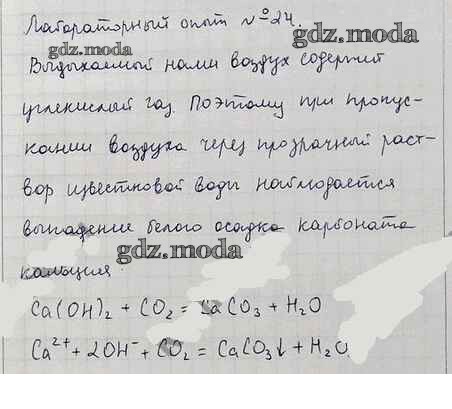 Лабораторный опыт №24.
gdz.moda
gdz.moda
Выдыхаемый нами воздух содержит
углекислый газ. Поэтому при пропус-
кании воздуха через прозрачный раст-
вор известковой воды наблюдается
выпадение белого осадка карбоната
gdz.moda
кальция.
Ca(OH)₂ + CO₂ = CaCO₃ + H₂O
Ca²⁺ + 2OH⁻ + CO₂ = CaCO₃↓ + H₂O